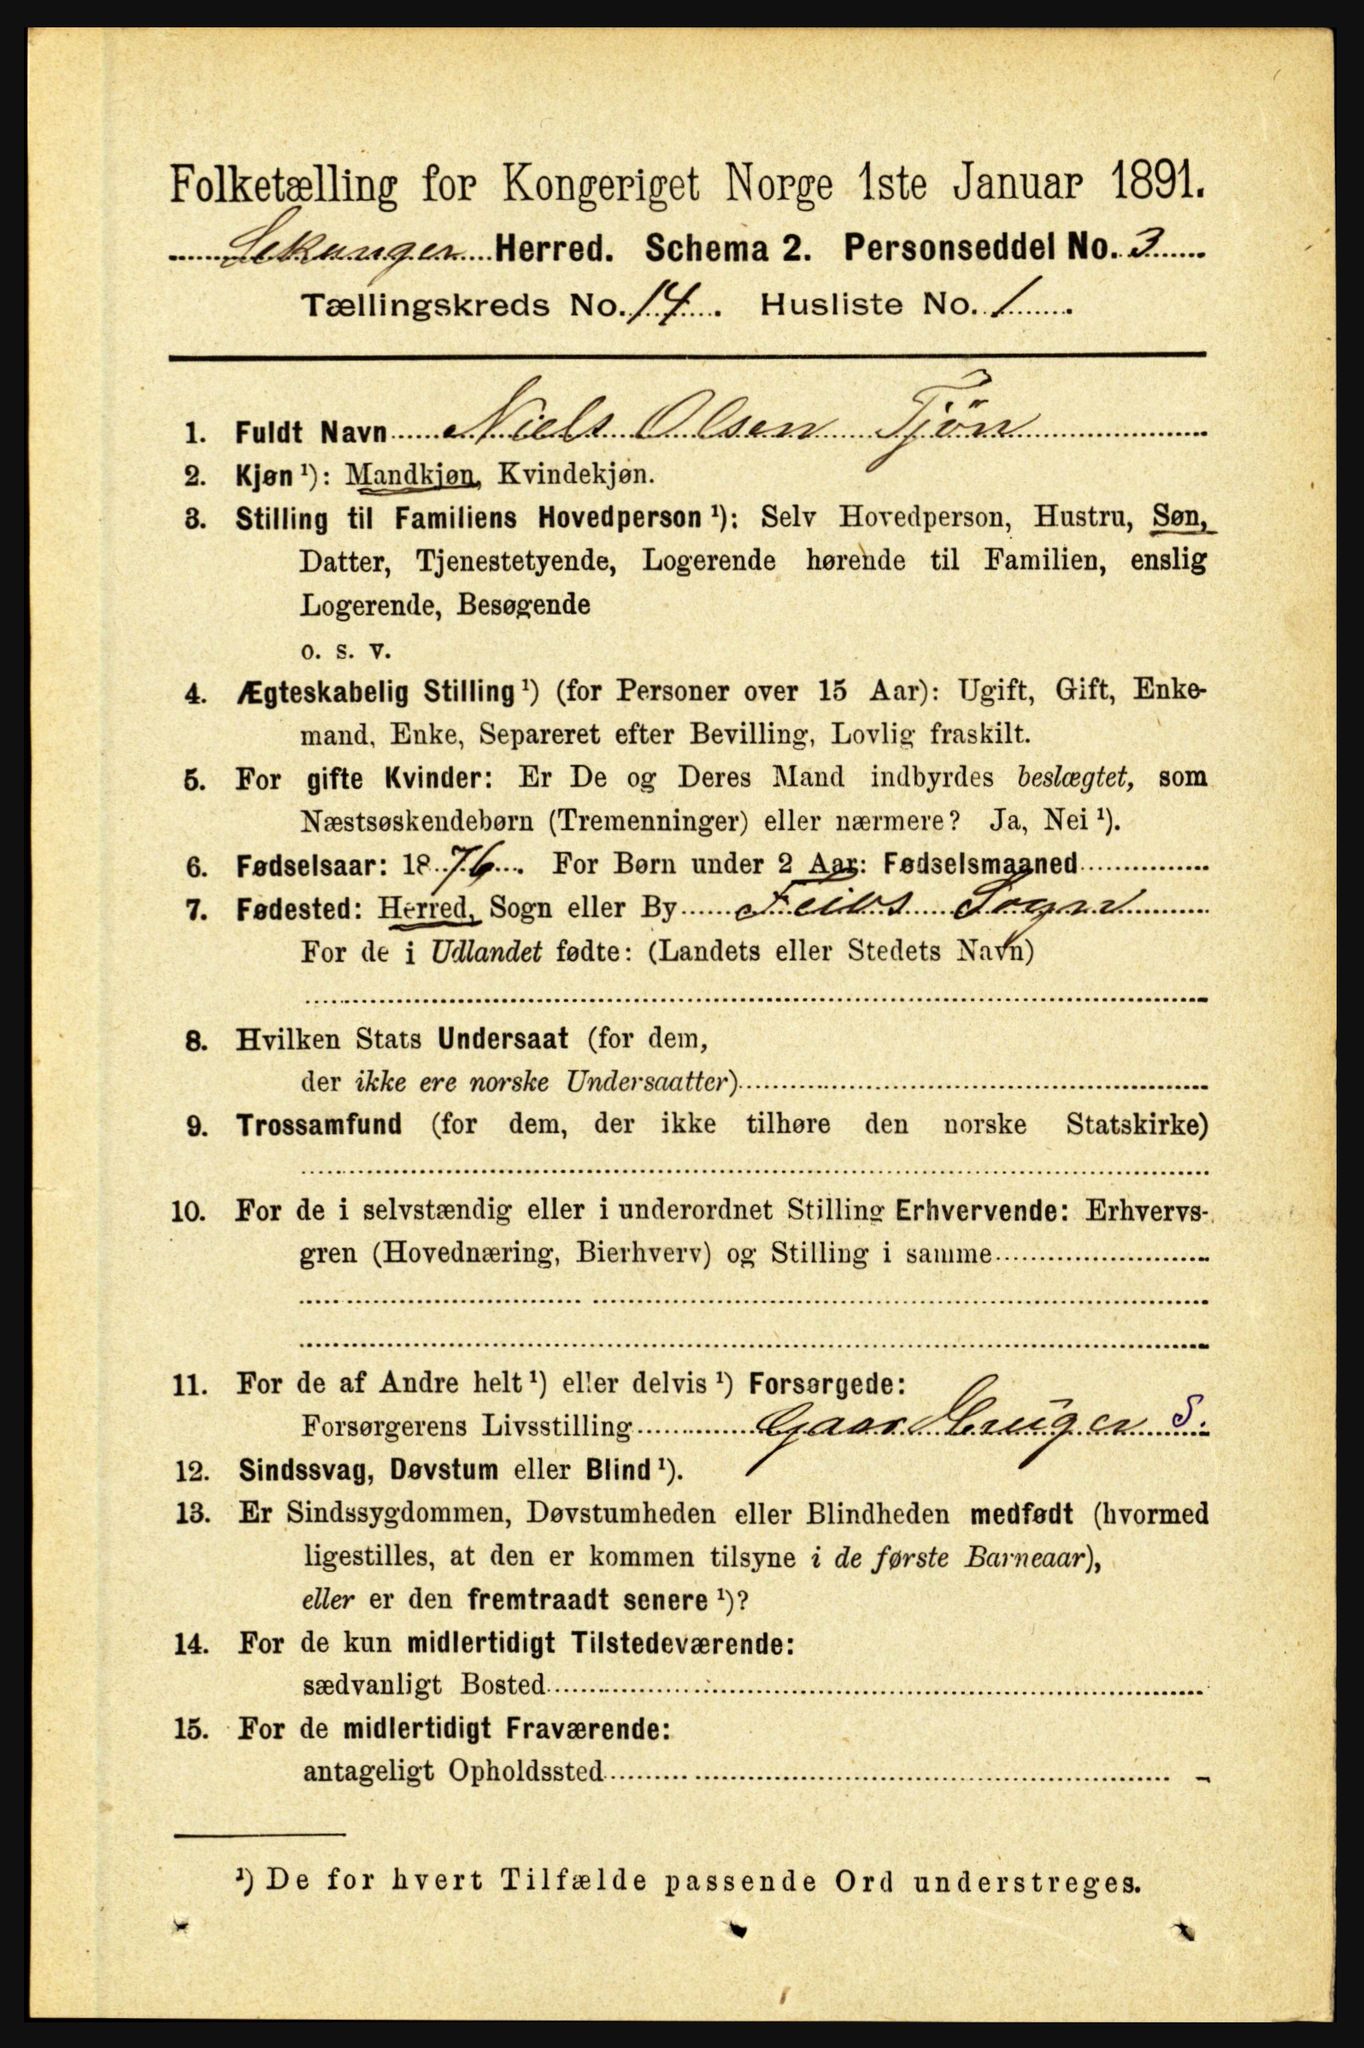 Folketælling for Kongeriget Norge 1ste Januar 1891.
Lekanger Herred. Schema 2. Personseddel No. 3
Tællingskreds No. 14. Husliste No. 1
1. Fuldt Navn Niels Olsen Tjøn
2. Kjøn ¹): Mandkjøn, Kvindekjøn.
3. Stilling til Familiens Hovedperson ¹): Selv Hovedperson, Hustru, Søn,
Datter, Tjenestetyende, Logerende hørende til Familien, enslig
Logerende, Besøgende
o. s. v.
4. Ægteskabelig Stilling ¹) (for Personer over 15 Aar): Ugift, Gift, Enke-
mand, Enke, Separeret efter Bevilling, Lovlig fraskilt.
5. For gifte Kvinder: Er De og Deres Mand indbyrdes beslægtet, som
Næstsøskendebørn (Tremenninger) eller nærmere? Ja, Nei ¹).
6. Fødselsaar: 1876. For Børn under 2 Aar: Fødselsmaaned
7. Fødested: Herred, Sogn eller By Feios Sogn
For de i Udlandet fødte: (Landets eller Stedets Navn)
8. Hvilken Stats Undersaat (for dem,
der ikke ere norske Undersaatter)
9. Trossamfund (for dem, der ikke tilhøre den norske Statskirke)
10. For de i selvstændig eller i underordnet Stilling Erhvervende: Erhvervs-
gren (Hovednæring, Bierhverv) og Stilling i samme
11. For de af Andre helt ¹) eller delvis ¹) Forsørgede:
Forsørgerens Livsstilling Gaardbruger S.
12. Sindssvag, Døvstum eller Blind ¹).
13. Er Sindssygdommen, Døvstumheden eller Blindheden medfødt (hvormed
ligestilles, at den er kommen tilsyne i de første Barneaar),
eller er den fremtraadt senere ¹)?
14. For de kun midlertidigt Tilstedeværende:
sædvanligt Bosted
15. For de midlertidigt Fraværende:
antageligt Opholdssted
¹) De for hvert Tilfælde passende Ord understreges.